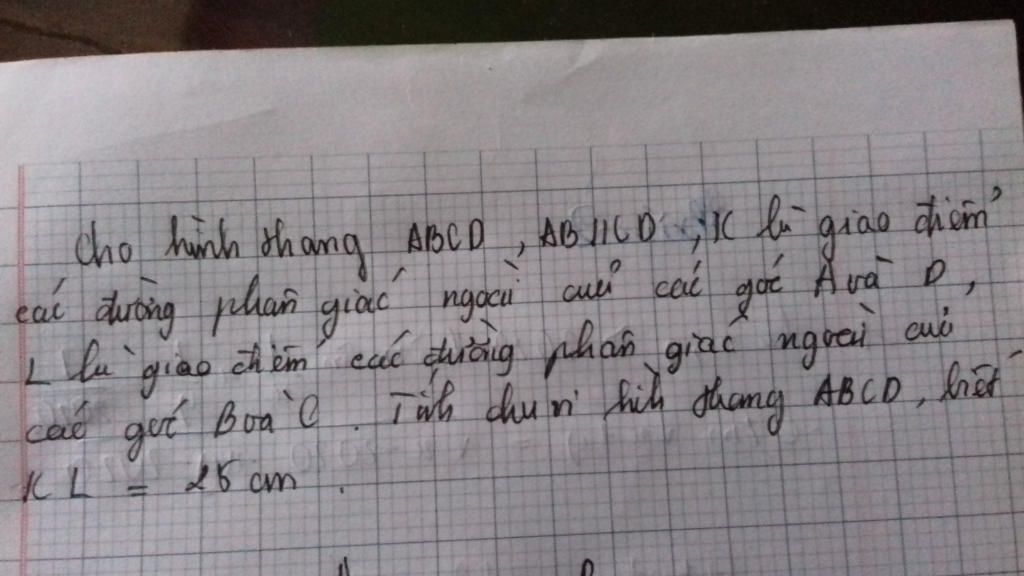 Cho hình thang ABCD, AB//CD, K là giao điểm
các đường phân giác ngoài của các góc A và D,
L là giao điểm các đường phân giác ngoài của
các góc B và C. Tính chu vi hình thang ABCD, biết
KL = 25 cm.